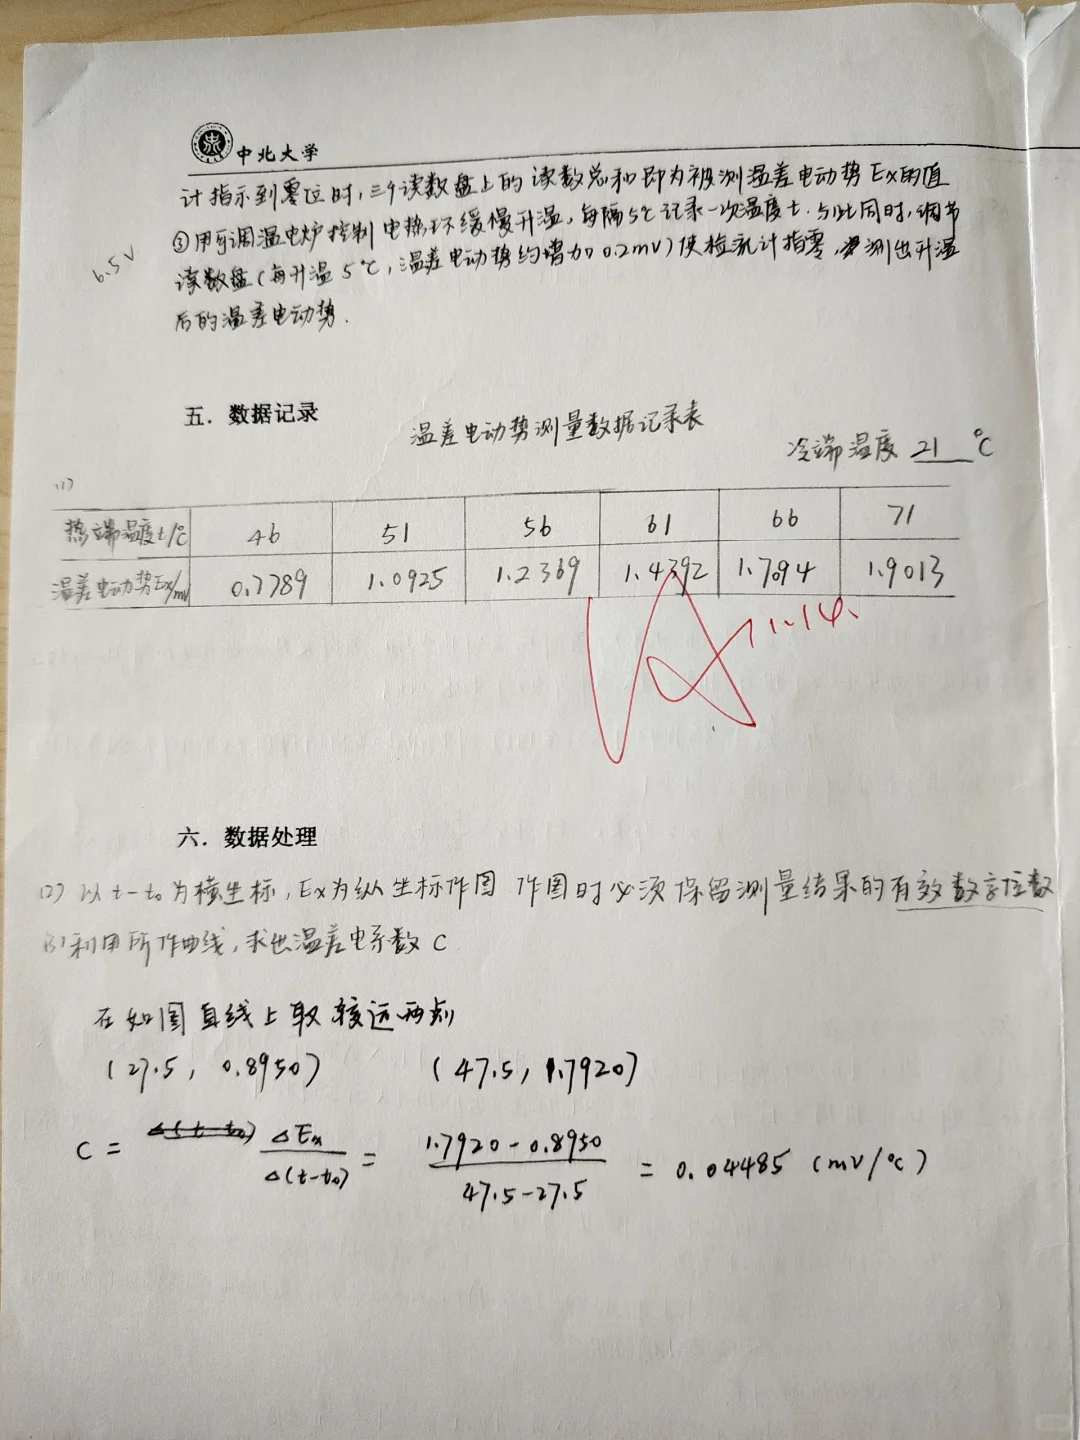 中北大学
计指示到零位时,三个读数盘上的读数总和即为被测温差电动势Ex的值
③用可调温电炉控制电热环缓慢升温,每隔5℃记录一次温度t.与此同时,调节
6.5V
读数盘(每升温5℃,温差电动势约增加0.2mV)使检流计指零,测出升温
后的温差电动势.
五. 数据记录
温差电动势测量数据记录表
冷端温度 21 ℃
(1)
热端温度t/℃ 46 51 56 61 66 71
温差电动势Ex/mV 0.7789 1.0925 1.2369 1.4392 1.7094 1.9013
11.14.
六. 数据处理
(2) 以t-t₀为横坐标,Ex为纵坐标作图 作图时必须保留测量结果的有效数字位数
(3)利用所作曲线,求出温差电系数C
在如图直线上取较远两点
(27.5, 0.8950) (47.5, 1.7920)
C = ΔEx/Δ(t-t₀) = (1.7920-0.8950)/(47.5-27.5) = 0.04485 (mV/℃)